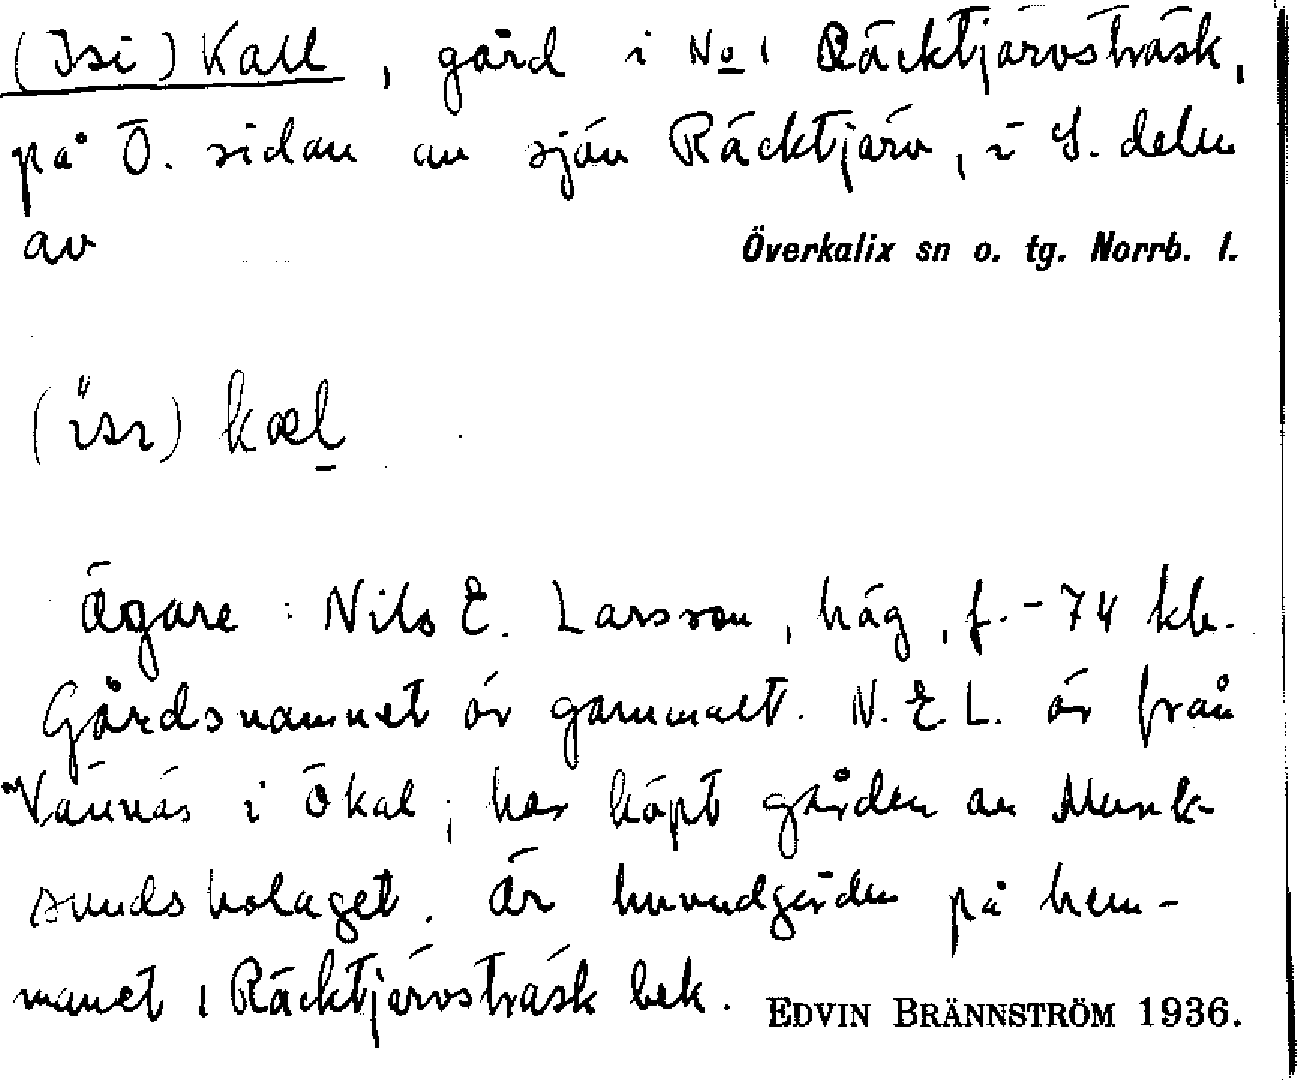 (Isi) Kall, gård i No 1 Räcktjärvsträsk,
på Ö. sidan av sjön Räcktjärv, i S. delen
av Överkalix sn o. tg. Norrb. l.
(ïsɩ) kæl
Ägare: Nils E. Larsson, häg, f. -74 kb.
Gårdsnamnet är gammalt. N. E. L. är från
Vännäs i Ökal; har köpt gården av Munk-
sundsbolaget. Är huvudgården på hem-
manet 1 Räcktjärvsträsk bek. EDVIN BRÄNNSTRÖM 1936.